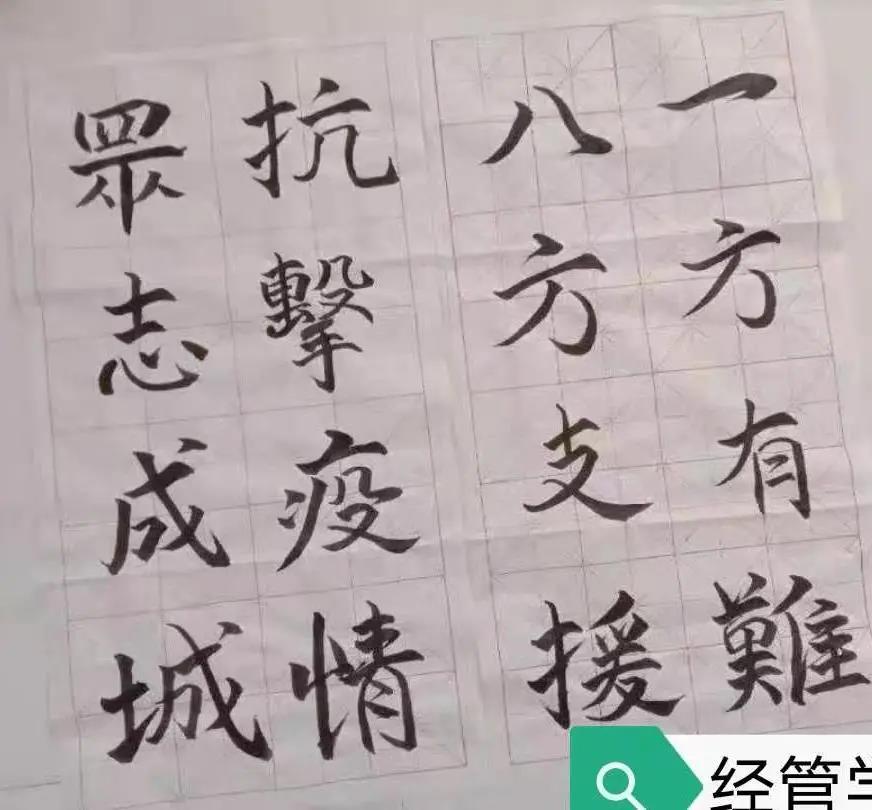 一方有難
八方支援
抗擊疫情
眾志成城
经管学